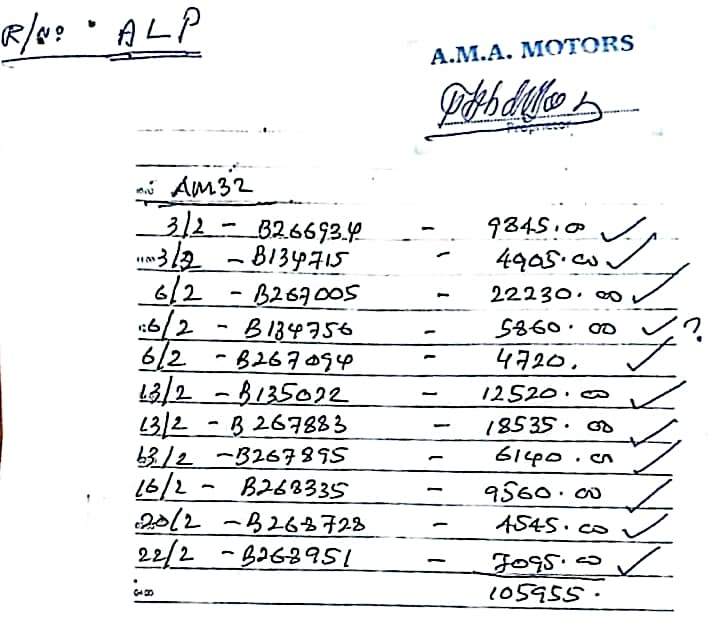 R/No: • ALP
A.M.A. MOTORS
Proprietor
AM32
3/2 - B266934 - 9845.00 ✓
3/2 - B134715 - 4905.00 ✓
6/2 - B267005 - 22230.00 ✓
6/2 - B134756 - 5860.00 ✓ ?
6/2 - B267094 - 4720. ✓
13/2 - B135022 - 12520.00 ✓
13/2 - B267883 - 18535.00 ✓
13/2 - B267895 - 6140.00 ✓
16/2 - B268335 - 9560.00 ✓
20/2 - B268728 - 4545.00 ✓
22/2 - B268951 - 7095.00 ✓
105955.